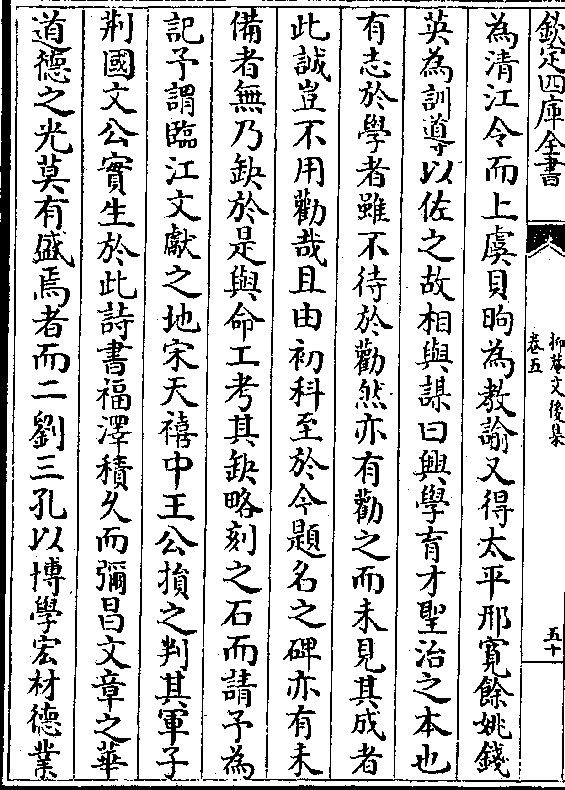 欽定四庫全書
抑菴文後集
卷五
五十
為清江令而上虞貝昫為教諭又得太平邢寬餘姚錢
英為訓導以佐之故相與謀曰興學育才聖治之本也
有志於學者雖不待於勸然亦有勸之而未見其成者
此誠豈不用勸哉且由初科至於今題名之碑亦有未
備者無乃缺於是與命工考其缺略刻之石而請予為
記予謂臨江文獻之地宋天禧中王公損之判其軍子
荆國文公實生於此詩書福澤積久而彌昌文章之華
道德之光莫有盛焉者而二劉三孔以博學宏材德業